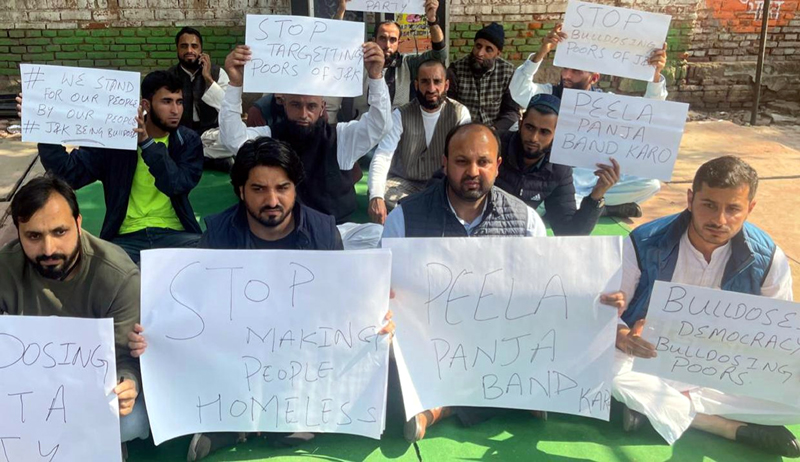 PARTY
STOP
TARGETTING
POORS OF J&K
STOP
BULLDOSING
POORS OF J&K
# WE STAND
FOR OUR PEOPLE
BY OUR PEOPLE
# J&K BEING BULLDO
PEELA
PANJA
BAND KARO
DOSING
TA
TY
STOP
MAKING
PEOPLE
HOMELESS
PEELA
PANJA
BAND KARO
BULLDOSE
DEMOCRACY
BULLDOSING
POORS.